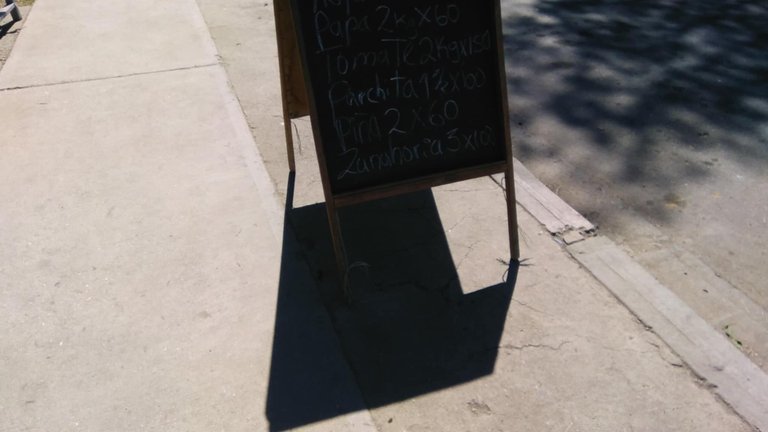 Papa 2kg x 60
Tomate 2kg x
Parchita 1 ½ x 100
Piña 2 x 60
Zanahoria 3 x